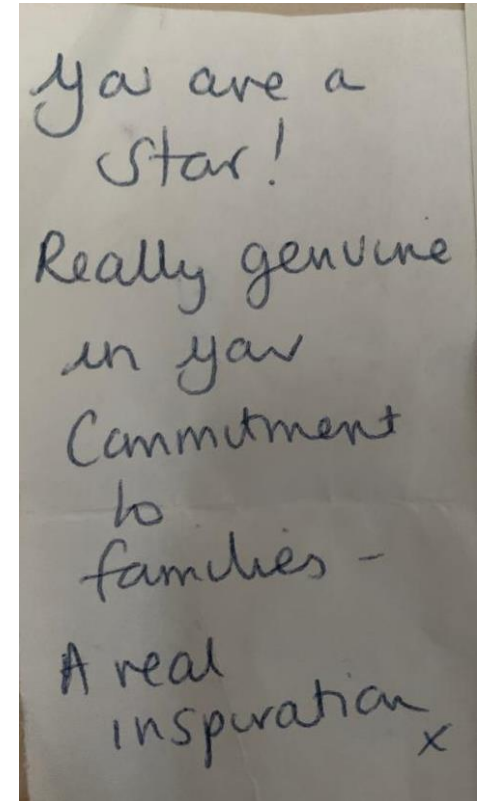 You are a
Star!
Really genuine
in your
Commitment
to
families -
A real
inspiration
x